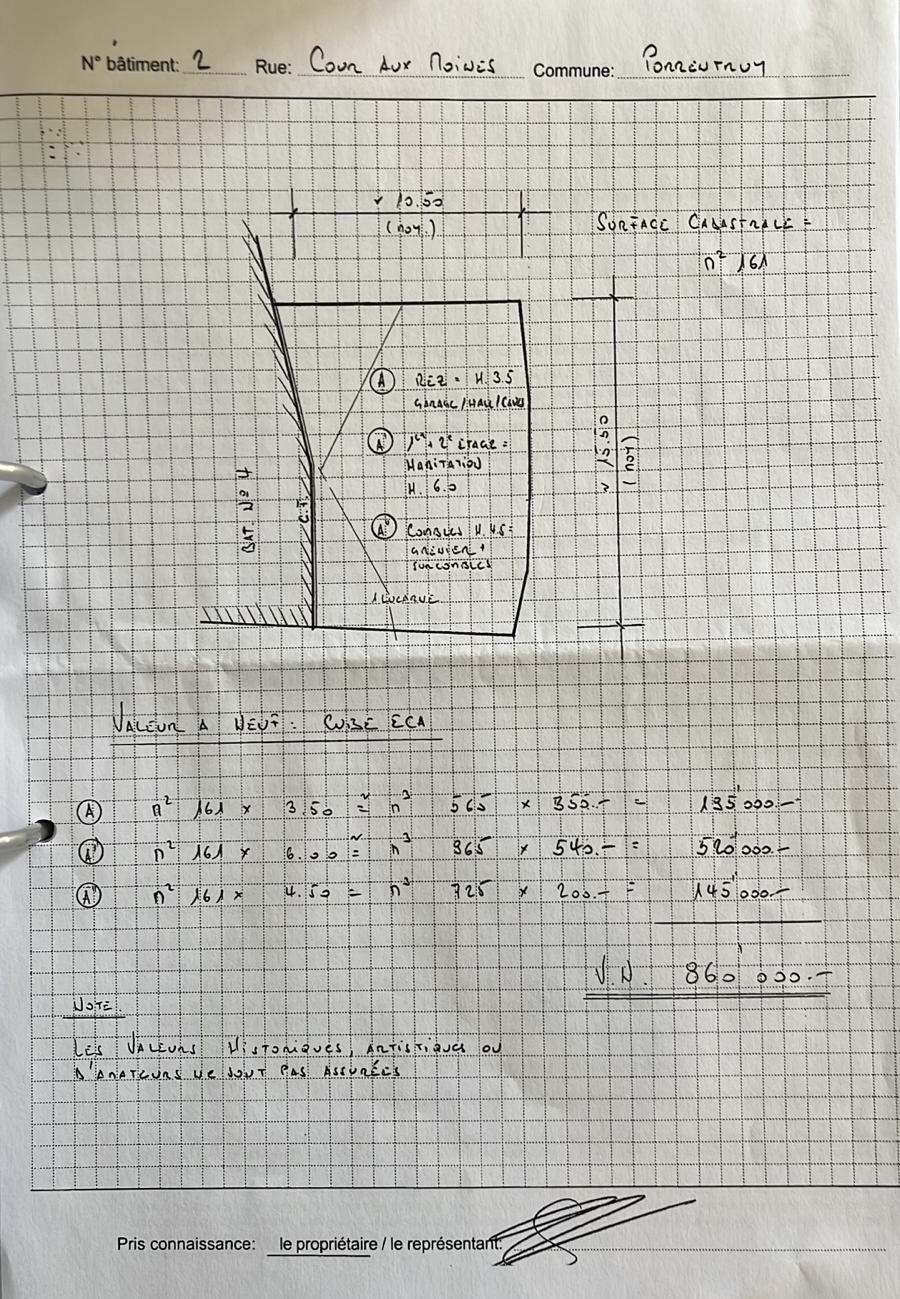 N° bâtiment: 2 Rue: COUR AUX MOINES Commune: PORRENTRUY
~ 10.50
(MOY.)
SURFACE CADASTRALE =
M² 161
A REZ = H. 3.5
GARAGE/HALL/CAVES
A' 1er + 2e ETAGE =
HABITATION
H. 6.0
A" COMBLES H. 4.5 =
GRENIER +
SURCOMBLES
1 LUCARNE
BAT. NO 4
C.F.
~ 15.50
(MOY.)
VALEUR A NEUF : CUBE ECA
A M² 161 × 3.50 ≅ M³ 565 × 350.- = 195'000.-
A' M² 161 × 6.00 ≅ M³ 965 × 540.- = 520'000.-
A" M² 161 × 4.50 = M³ 725 × 200.- = 145'000.-
V.N. 860'000.-
NOTE
LES VALEURS HISTORIQUES, ARTISTIQUES OU
D'AMATEURS NE SONT PAS ASSURÉES
Pris connaissance: le propriétaire / le représentant: